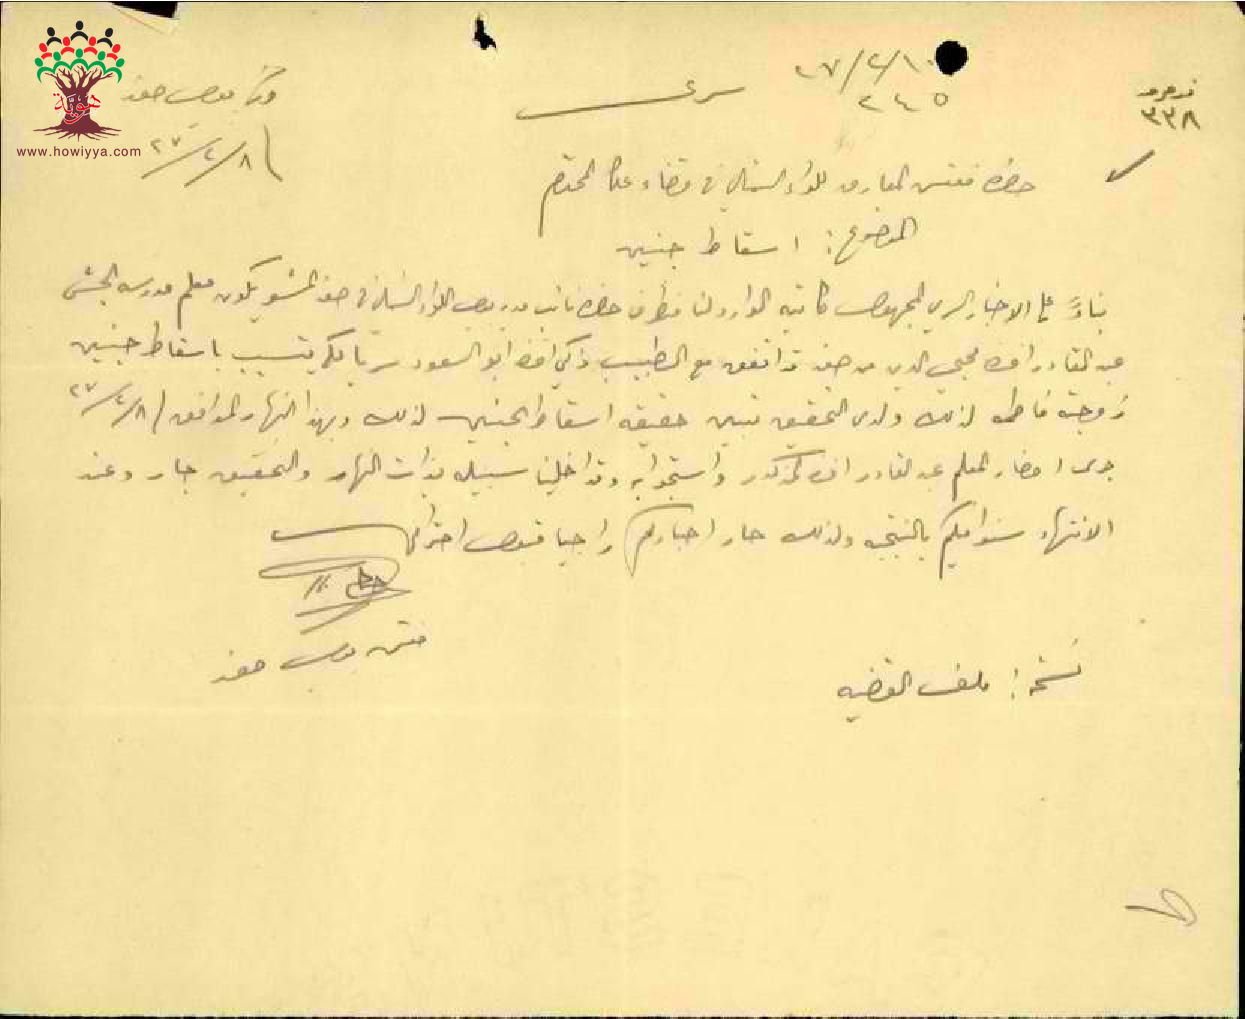 هوية
www.howiyya.com
٢٧/٢/١٠
٢٤٥
سري
نمرو
٣٣٨
بوليس صفد
٢٧/٢/٨
حضرة مفتش المعارف للواء الشمالي في قضاء عكا المحترم
الموضوع: اسقاط جنين
بناءً على الاخبار السري المجهول كاتبه الوارد لنا من حضرة نائب مدير بوليس اللواء الشمالي في صفد يكون معلم مدرسة الجش
عبد القادر افندي محيي الدين من صفد قد اتفق مع الطبيب زكي افندي ابو السعود سريا لكي يتسبب باسقاط جنين
زوجته فاطمه لذلك ولدى التحقيق تبين حقيقة اسقاط الجنين لذلك وبهذا النهار الموافق ٢٧/٢/٨
جرى احضار المعلم عبد القادر افندي المذكور واستجوابه وقد اخلينا سبيله بذات النهار والتحقيق جار وعند
الانتهاء سنوافيكم بالنتيجه ولذلك صار اخباركم راجيا قبول احترامي
مفتش بوليس صفد
نسخة: ملف القضيه